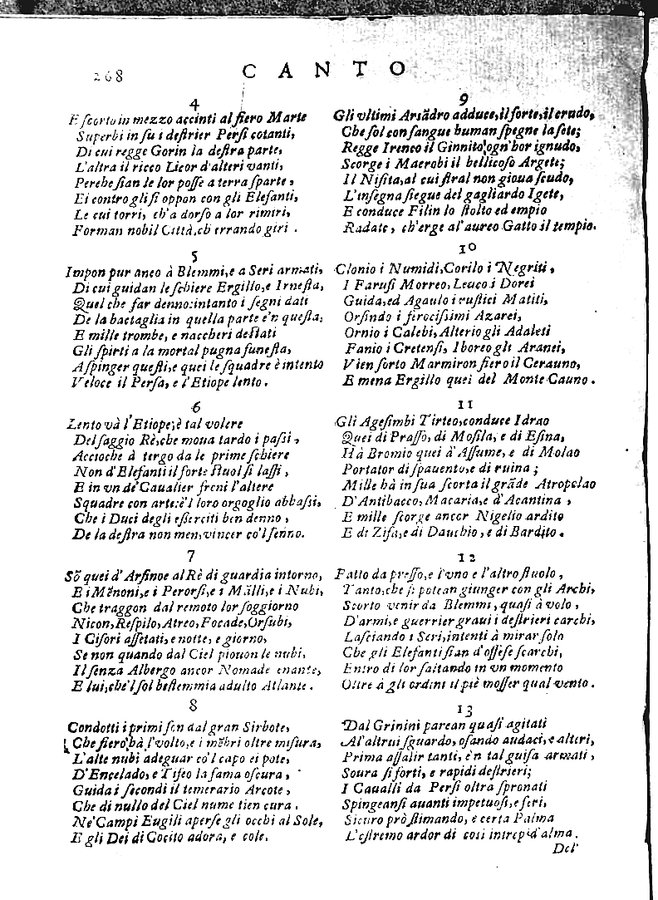 268
CANTO
4
E scorto in mezzo accinti al fiero Marte
Superbi in su i destrier Persi cotanti,
Di cui regge Gorin la destra parte,
L'altra il ricco Licor d'alteri vanti,
Perche sian le lor posse a terra sparte,
Ei contro gli si oppon con gli Elefanti,
Le cui torri, ch'a dorso a lor rimiri,
Forman nobil Città, ch errando giri.
5
Impon pur anco à Blemmi, e a Seri armati,
Di cui guidan le schiere Ergillo, e Irnesta,
Quel che far denno: intanto i segni dati
De la battaglia in quella parte e'n questa;
E mille trombe, e naccheri destati
Gli spirti a la mortal pugna funesta,
A spinger questi, e quei le squadre è intento
Veloce il Persa, e l'Etiope lento.
6
Lento và l'Etiope; è tal volere
Del saggio Rè, che moua tardo i passi,
Accioche à tergo da le prime schiere
Non d'Elefanti il forte stuol si lassi,
E in vn de' Caualier freni l'altere
Squadre con arte: è'l loro orgoglio abbassi,
Che i Duci degli eserciti ben denno,
De la destra non men, vincer co'l senno.
7
Sõ quei d'Arsinoe al Rè di guardia intorno,
E i Mẽnoni, e i Perorsi, e i Mãlli, e i Nubi,
Che traggon dal remoto lor soggiorno
Nicon, Respilo, Atreo, Focade, Orsubi,
I Cisori assetati, e notte, e giorno,
Se non quando dal Ciel piouon le nubi,
Il senza Albergo ancor Nomade errante,
E lui, che'l sol bestemmia adulto Atlante.
8
Condotti i primi son dal gran Sirbote,
Che fiero hà l'volto, e i mẽbri oltre misura,
L'alte nubi adeguar co'l capo ei pote,
D'Encelado, e Tifeo la fama oscura,
Guida i secondi il temerario Arcote,
Che di nullo del Ciel nume tien cura.
Ne' Campi Eugili aperse gli occhi al Sole,
E gli Dei di Cocito adora, e cole.
9
Gli vltimi Ariãdro adduce, il forte, il crudo,
Che sol con sangue human spegne la sete;
Regge Irenco il Ginnito ogn'hor ignudo,
Scorge i Macrobi il bellicoso Argete;
Il Nisita, al cui stral non gioua scudo,
L'insegna siegue del gagliardo Igete,
E conduce Filin lo stolto ed empio
Radate, ch'erge al'aureo Gatto il tempio.
10
Clonio i Numidi, Corilo i Negriti,
I Farusi Morreo, Leuco i Dorei
Guida, ed Agaulo i rustici Matiti,
Orsindo i ferocissimi Azarei,
Ornio i Calebi, Alterio gli Adaleti
Fanio i Cretensi, Iboreo gli Aranei,
Vien forto Marmiron fiero il Cerauno,
E mena Ergillo quei del Monte Cauno.
11
Gli Agesimbi Tirteo, conduce Idrao
Quei di Prasso, di Mosila, e di Esina,
Hà Bromio quei d'Assume, e di Molao
Portator di spauento, e di ruina;
Mille hà in sua scorta il grãde Atropelao
D'Antibacco, Macaria, e d'Acantina,
E mille scorge ancor Nigelio ardito
E di Zisa, e di Dauchio, e di Bardito.
12
Fatto da presso, e l'vno e l'altro stuolo,
Tanto, che si potean giunger con gli Archi,
Scorto venir da Blemmi, quasi à volo,
D'armi, e guerrier graui i destrieri carchi,
Lasciando i Seri, intenti à mirar solo
Che gli Elefanti sian d'offese scarchi,
Entro di lor saltando in vn momento
Oltre à gli ordini il piè mosser qual vento.
13
Dal Grinini parean quasi agitati
Al'altrui sguardo, osando audaci, e alteri,
Prima assalir tanti, e'n tal guisa armati,
Soura si forti, e rapidi destrieri;
I Caualli da Persi oltra spronati
Spingeansi auanti impetuosi, e feri,
Sicuro prò stimando, e certa Palma
L'estremo ardor di così intrepid'alma.
Del'